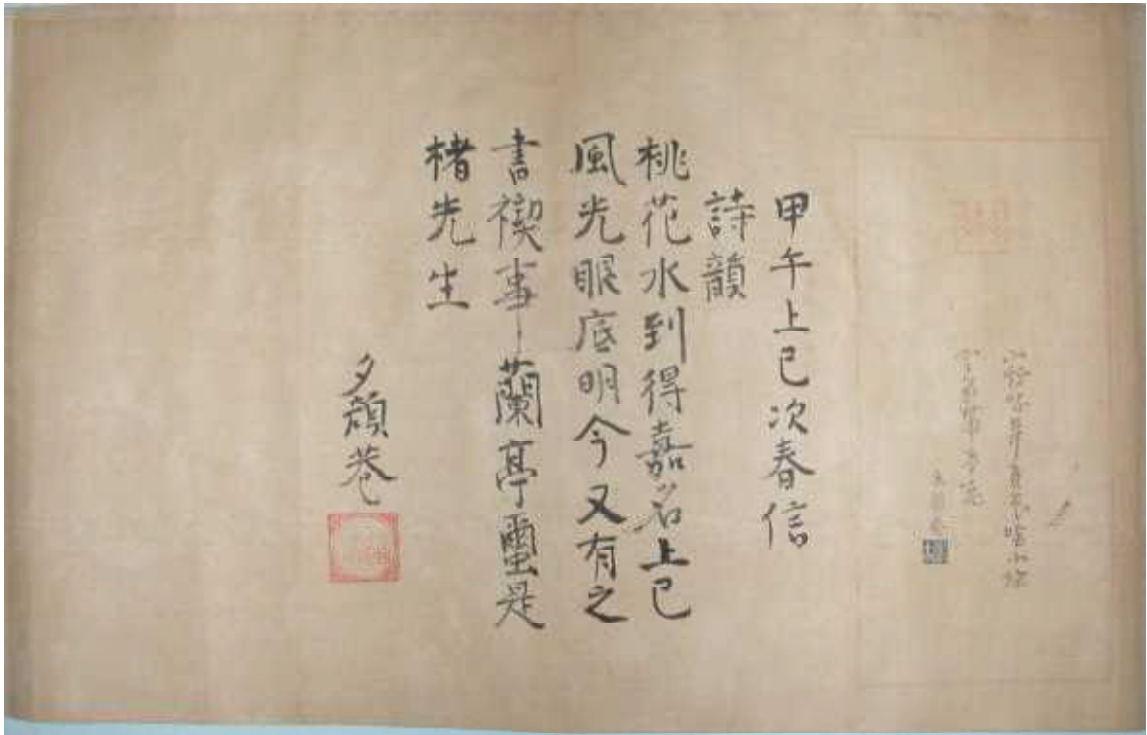 甲午上巳次春信
詩韻
桃花水到得嘉名上巳
風光眼底明今又有之
書禊事蘭亭璽是
楮先生
夕顔巷